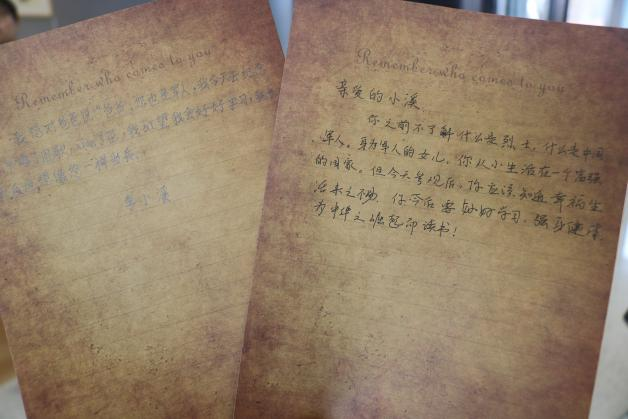 Remember who comes to you
我想对爸爸说“爸爸，您也是军人，我今天去
我好好学习，
像您一样当兵。
小溪
Remember who comes to you
亲爱的小溪
你之前不了解什么是烈士，什么是中国
军人。身为军人的女儿，你从小生活在一个富强
的国家。但今天参观后，你应该知道幸福生
活来之不易。你今后要好好学习，强身健体
为中华之崛起而读书！